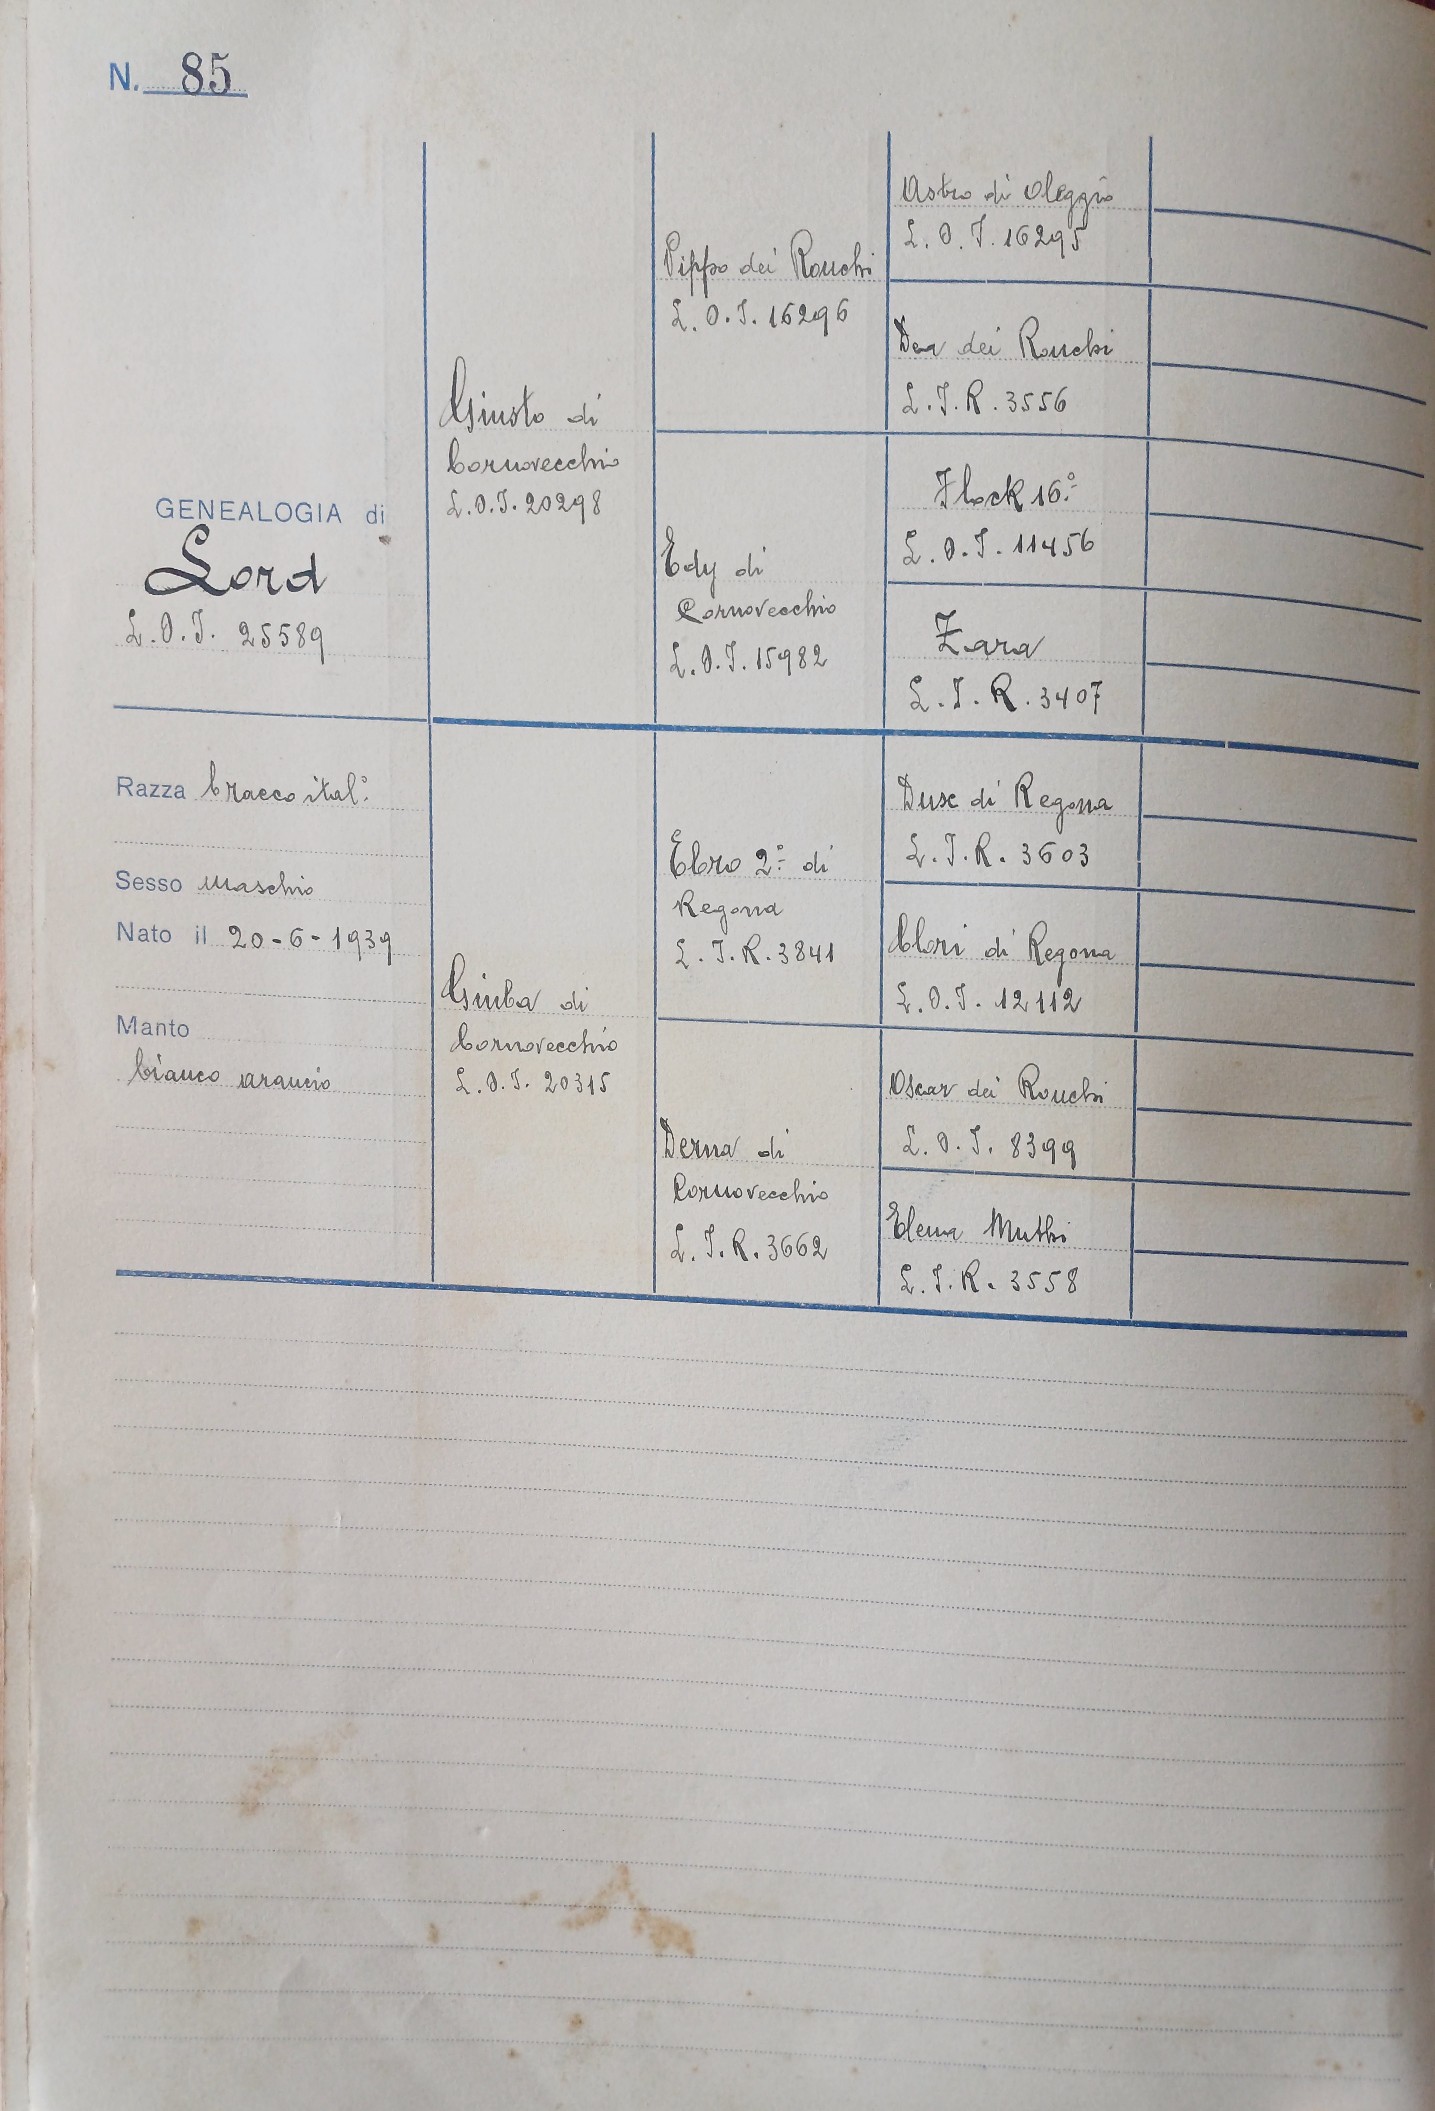 N. 85
GENEALOGIA di
Lord
L.O.I. 25589
Razza bracco ital.º
Sesso maschio
Nato il 20-6-1939
Manto
bianco arancio
Giusto di
Cornovecchio
L.O.I. 20298
Giuba di
Cornovecchio
L.O.I. 20315
Pippo dei Ronchi
L.O.I. 16296
Edy di
Cornovecchio
L.O.I. 15982
Ebro 2º di
Regona
L.I.R. 3841
Derna di
Cornovecchio
L.I.R. 3662
Astro di Oleggio
L.O.I. 16295
Dea dei Ronchi
L.I.R. 3556
Flock 16.º
L.O.I. 11456
Zara
L.I.R. 3407
Duse di Regona
L.I.R. 3603
Clori di Regona
L.O.I. 12112
Oscar dei Ronchi
L.O.I. 8399
Elena Muthi
L.I.R. 3558